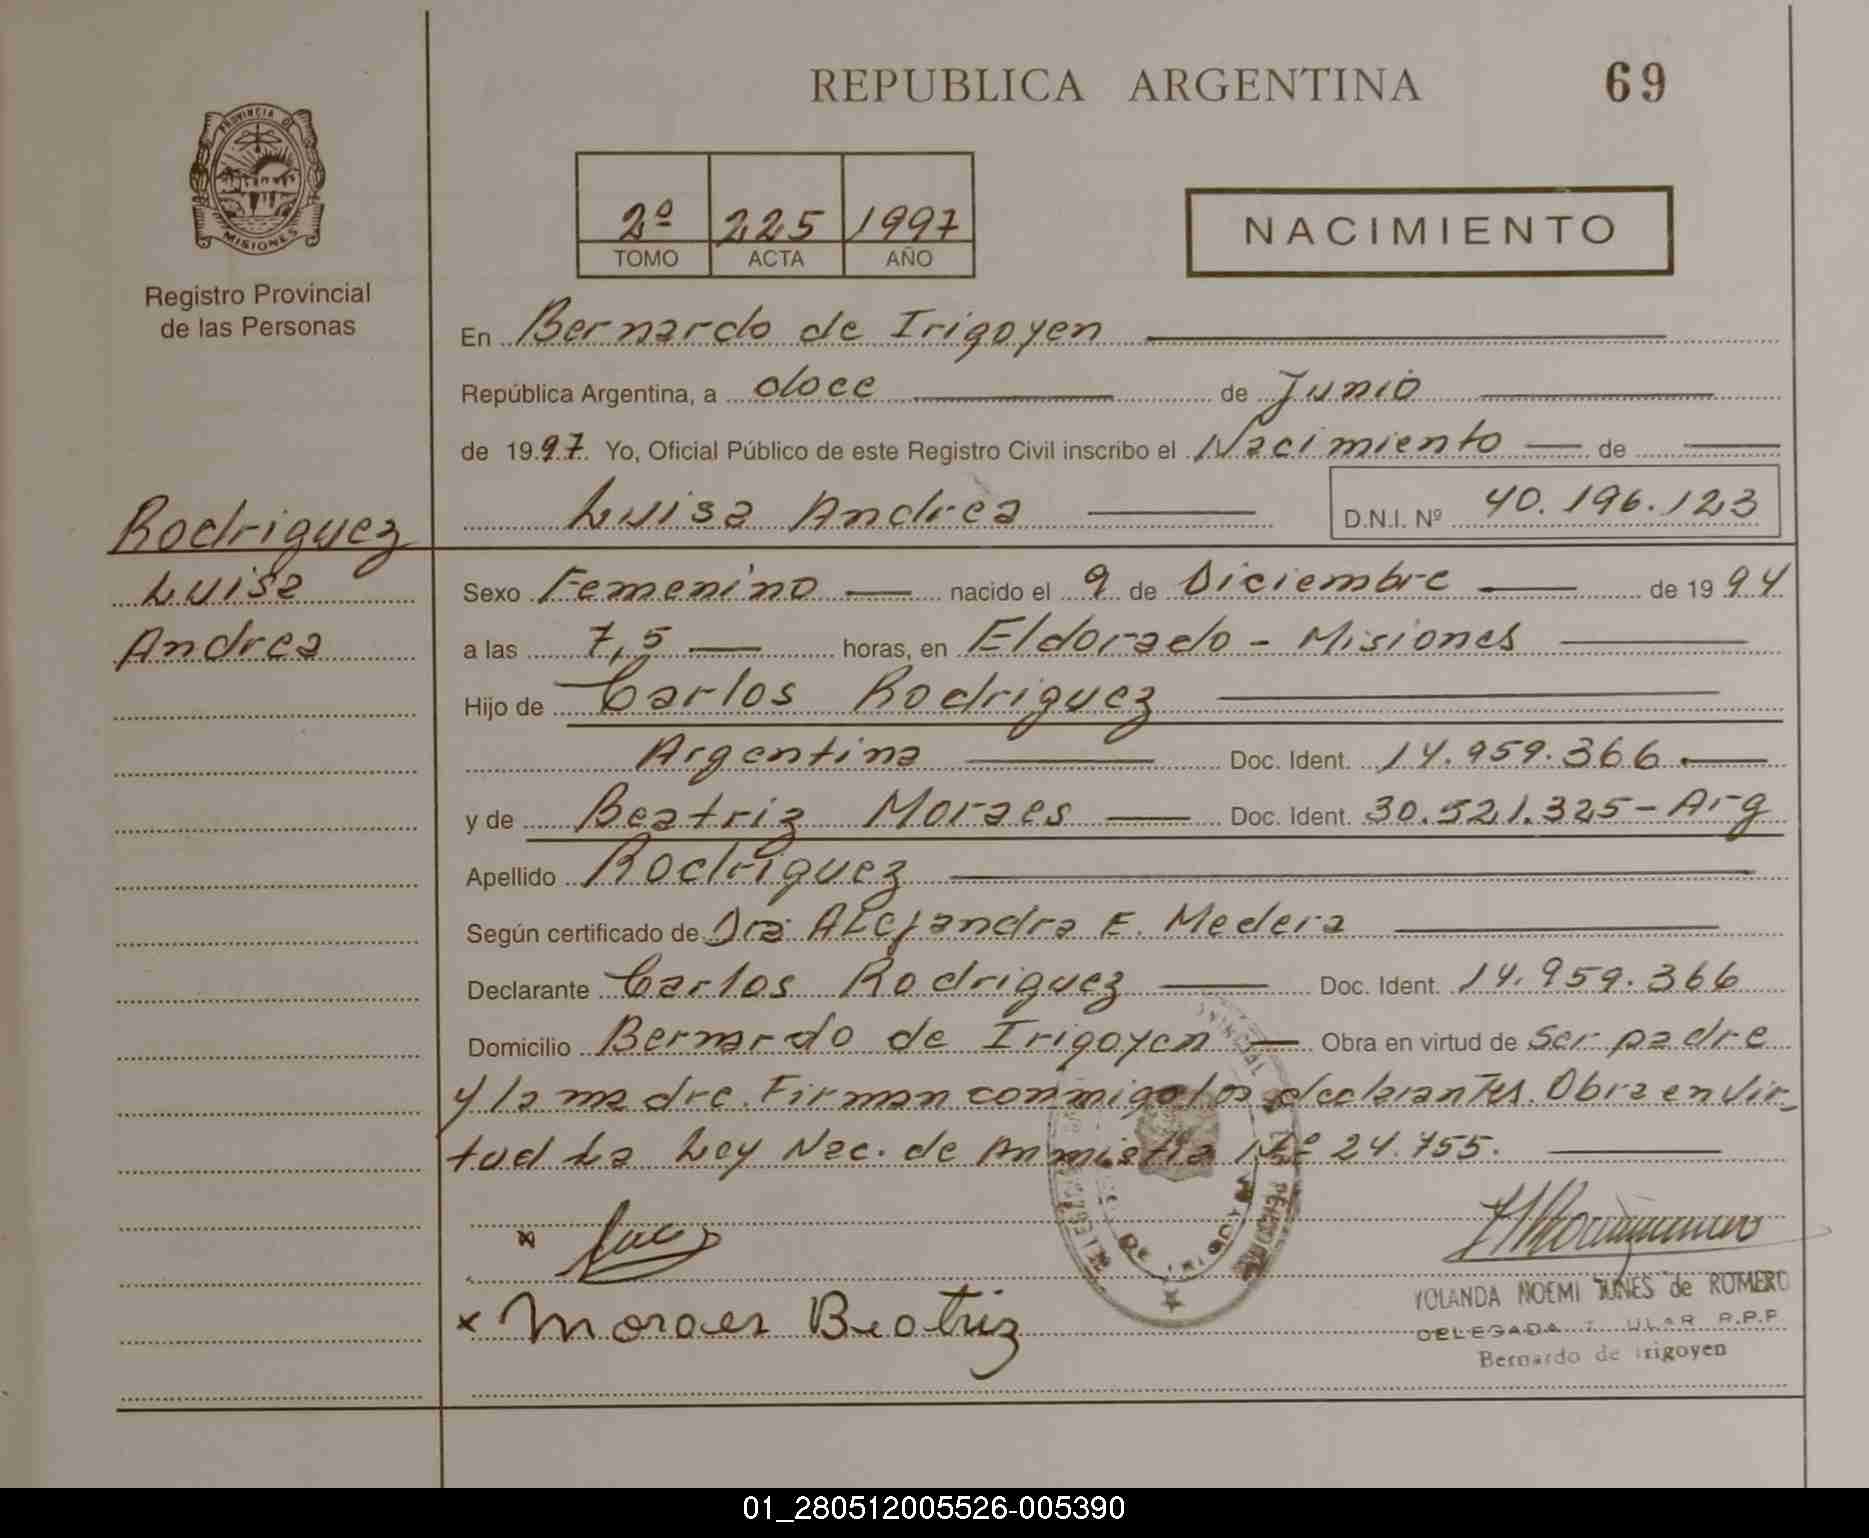 REPUBLICA ARGENTINA
69
PROVINCIA DE
MISIONES
Registro Provincial
de las Personas
2º 225 1997
TOMO ACTA AÑO
NACIMIENTO
En Bernardo de Irigoyen
República Argentina, a doce de Junio
de 1997 Yo, Oficial Público de este Registro Civil inscribo el Nacimiento de
Luisa Andrea D.N.I. Nº 40.196.123
Rodriguez
Luisa
Andrea
Sexo Femenino nacido el 9 de Diciembre de 1994
a las 7,5 horas, en Eldorado - Misiones
Hijo de Carlos Rodriguez
Argentina Doc. Ident. 14.959.366
y de Beatriz Moraes Doc. Ident. 30.521.325 - Arg
Apellido Rodriguez
Según certificado de Dra Alejandra E. Medera
Declarante Carlos Rodriguez Doc. Ident. 14.959.366
Domicilio Bernardo de Irigoyen Obra en virtud de ser padre
y la madre. Firman conmigo los declarantes. Obra en vir-
tud La Ley Nac. de Anmistia Nº 24.755.
x
x Moraes Beatriz
YOLANDA NOEMI JUNES de ROMERO
DELEGADA R.P.P.
Bernardo de Irigoyen
01_280512005526-005390